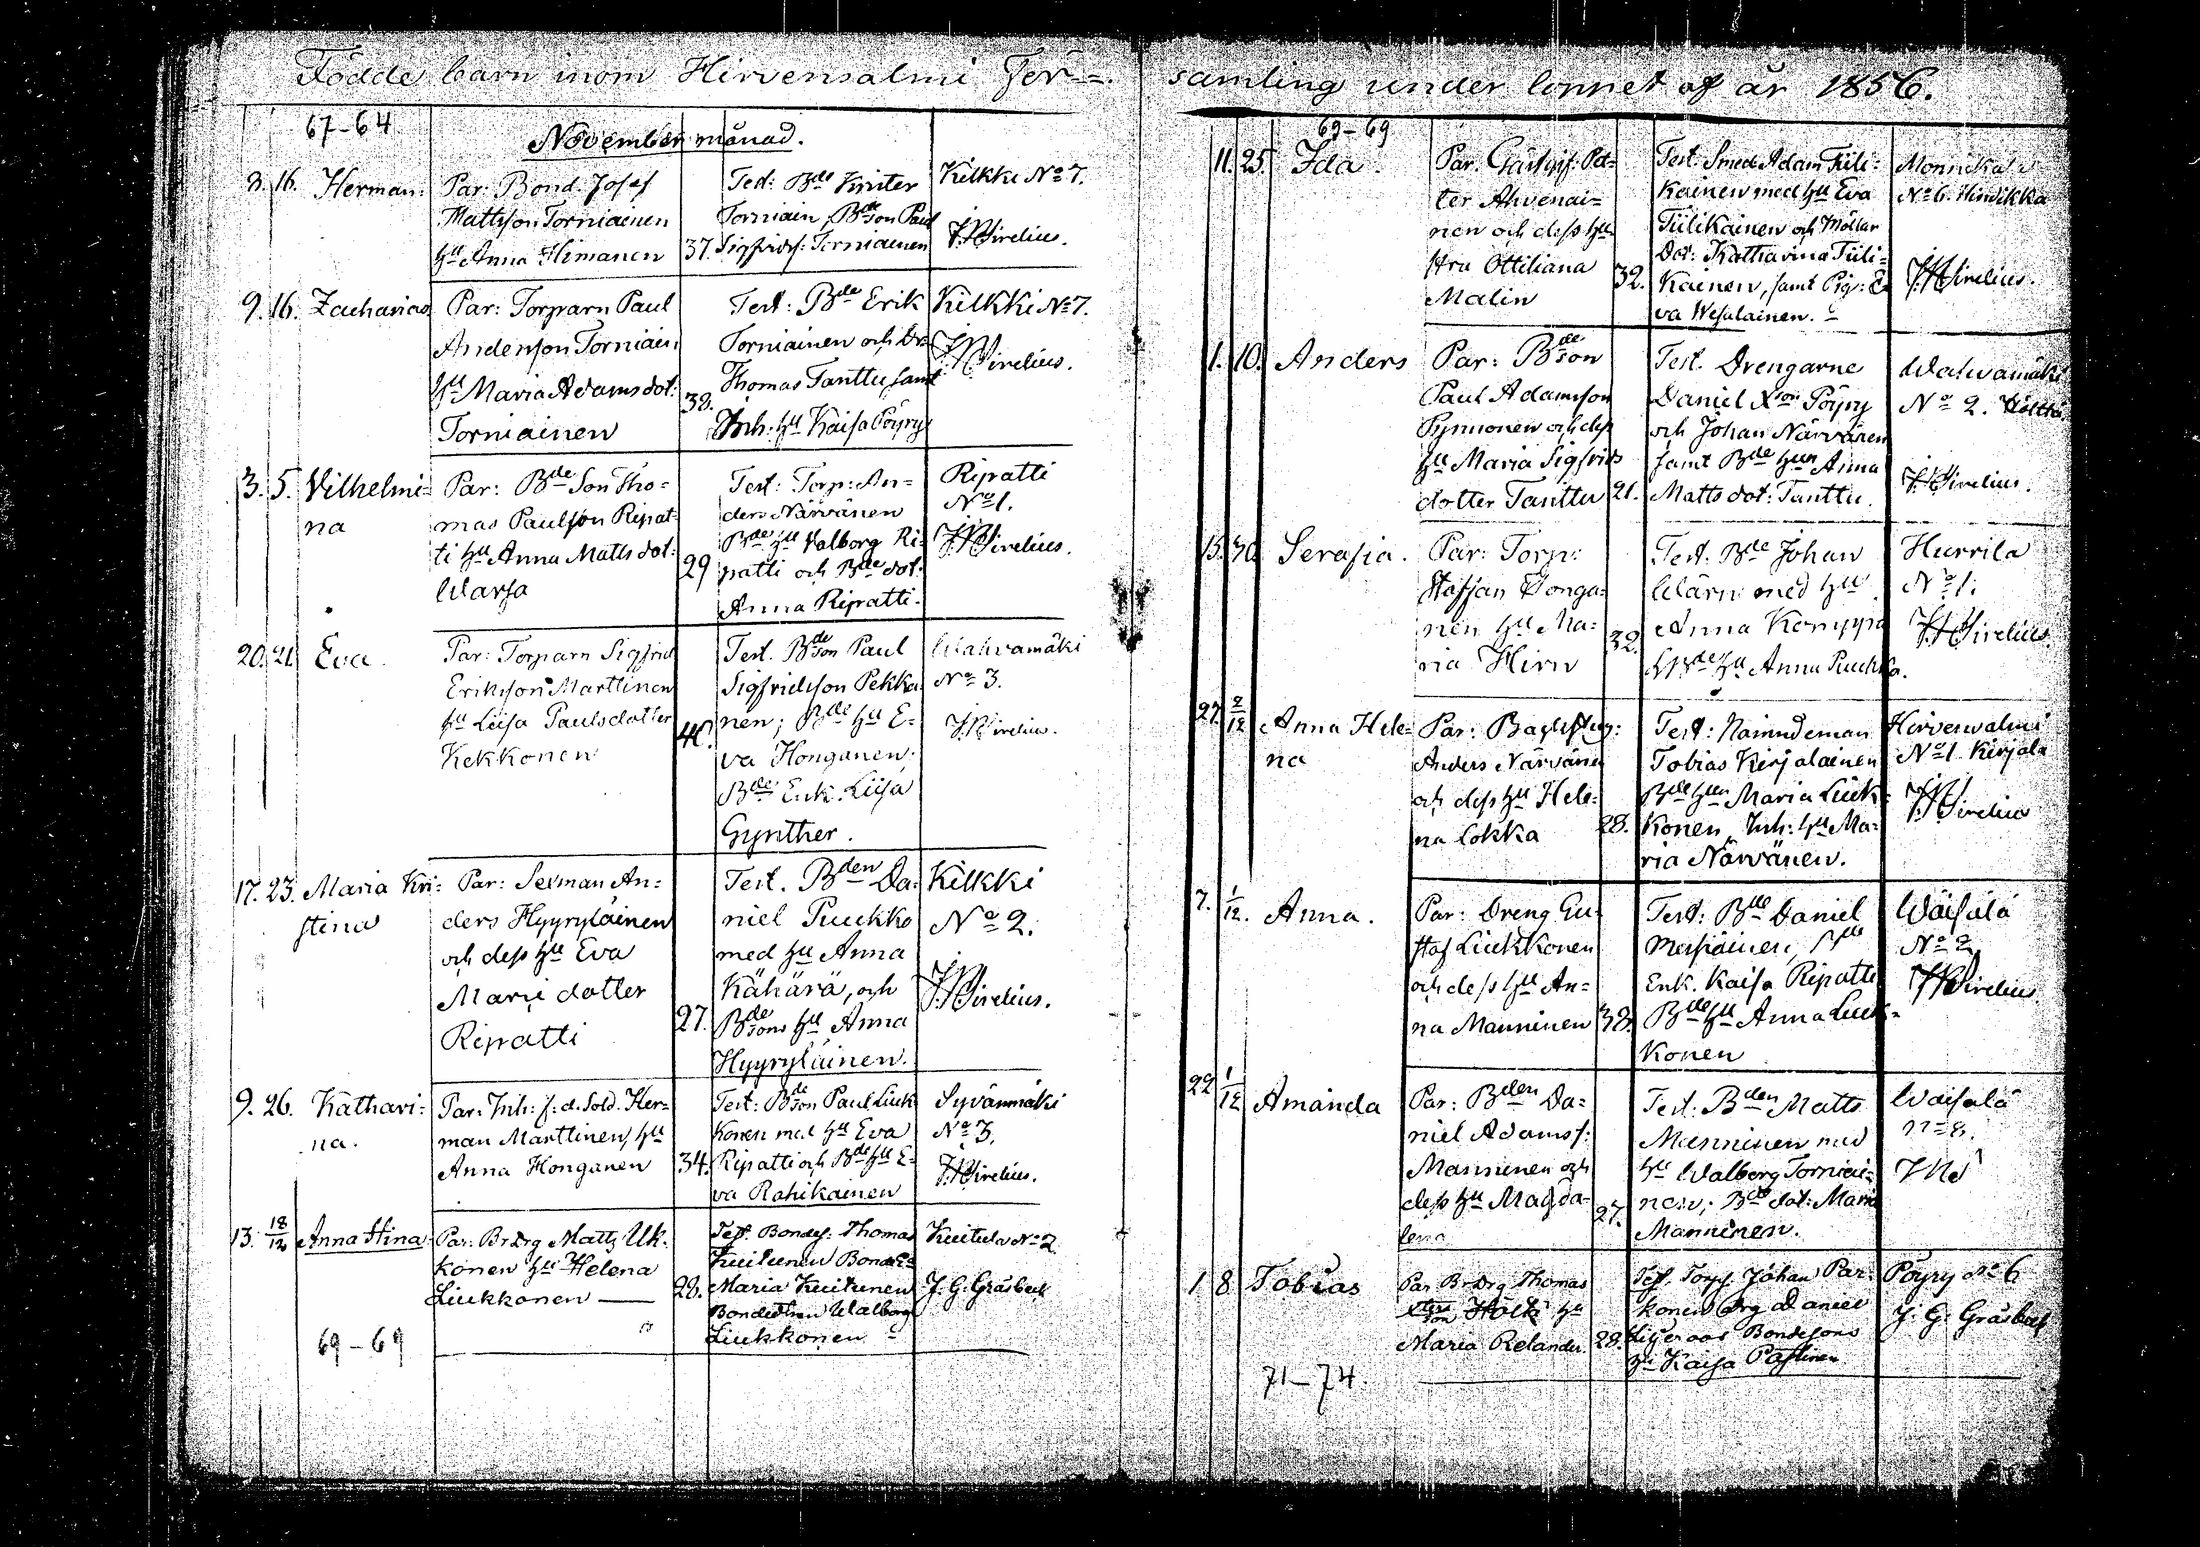 Födde barn inom Hirvensalmi För=
67-64
November månad.
8. 16. Herman.
Par: Bond. Josef
Mattsson Torniainen
hu Anna Himanen 37.
Test: Bde Krister
Torniain, Bdeson Paul
Sigfridss: Torniainen
Kilkki No 7.
9. 16. Zacharias
Par: Torparn Paul
Andersson Torniain
hu Maria Adamsdot:
Torniainen 38.
Test: Bde Erik
Torniainen och Dr
Thomas Tanttu, samt
Inh: hu Kaisa Pöyry
Kilkki No 7.
3. 5. Vilhelmi=
na
Par: Bde Son Tho=
mas Paulsson Ripat=
ti hu Anna Mattsdot:
Warsa 29
Test: Torp: An=
ders Närvänen
Bde hu Valborg Ri=
patti och Bde dot:
Anna Ripatti.
Ripatti
No 1.
20. 21. Eva.
Par: Torparn Sigfrid
Eriksson Marttinen
hu Leisa Paulsdotter
Kekkonen
Test. Bdeson Paul
Sigfridsson Pekka=
nen; Bde hu E=
va Honganen;
Bde Enk. Liisa
Gynther.
Wahvamäki
No 3.
17. 23. Maria Kri=
stina
Par: Sexman An=
ders Hyyryläinen
och dess hu Eva
Marie dotter
Ripatti 27.
Test. Bden Da=
niel Puukko
med hu Anna
Kähärä, och
Bdesons hu Anna
Hyyryläinen.
Kilkki
No 2.
9. 26. Kathari=
na.
Par: Inh: f: d. Sold. Her=
man Marttinen, hu
Anna Honganen 34.
Test: Bdeson Paul Liuk
konen med hu Eva
Ripatti och Bde hu E=
va Rahikainen
Syvänmäki
No 3.
13. 18/12 Anna Stina
Par: Br Drg Matts Uk=
konen hu Helena
Liukkonen 28.
Test. Bondes: Thomas
Kuitunen Bonde
Maria Kuitunen
Walborg
Liukkonen
Kuitula No 2.
J: G: Gråsbeck
69-69
samling under loppet af år 1856.
69-69
11. 25. Ida.
Par. Gästgif: Pet=
ter Ahvenai=
nen och dess hu=
stru Ottiliana
Malin 32.
Test. Smed Adam Tiili=
kainen med hu Eva
Tiilikainen och Möllar
Dot: Katharina Tiili=
kainen, samt Pig: E=
va Wesalainen.
No 6. Hindikka
1. 10. Anders
Par: Bdeson
Paul Adamsson
Pynnonen och dess
hu Maria Sigfrids
dotter Tanttu 21.
Test. Drengarne
Daniel Xson Pöyry
och Johan Närvänen
samt Bde hun Anna
Matts dot: Tanttu.
Wahvamäki
No 2.
15. 30. Serafia.
Par: Torp:
Staffan Honga=
nen hu Ma=
ria Hirn 32.
Test. Bde Johan
Wärn med hu
Anna Komppa
Bde hu Anna Puukko.
Hurrila
No 1.
27. 2/12 Anna Hele=
na
Anders Närvänen
och dess hu Hele=
na Lokka 28.
Test: Nämndeman
Tobias Kirjalainen
Bde hun Maria Liuk=
konen, Inh: hu Ma=
ria Närvänen.
Hirvensalmi
No 1. Kirjala
7. 1/12. Anna.
Par: Dreng Gu=
staf Liukkonen
och dess hu An=
na Manninen 38.
Test: Bde Daniel
Enk. Kaisa Ripatti
Bde hu Anna Liuk=
konen
Wäisälä
No 2
22 1/12 Amanda
Par: Bden Da=
niel Adamss:
Manninen och
dess hu Magda=
lena 27.
Test: Bden Matts
Manninen med
hu Walborg Torniai=
nen; Bde dot: Maria
Manninen.
Wäisälä
1. 8 Tobias
Par Br Drg Thomas
hu
Maria Relander. 28.
Test. Torp. Johan Par=
konen Drg Daniel
Bondesons
hu Kaisa Pastinen
Pöyry No 6
J: G: Gråsbeck
71-74.